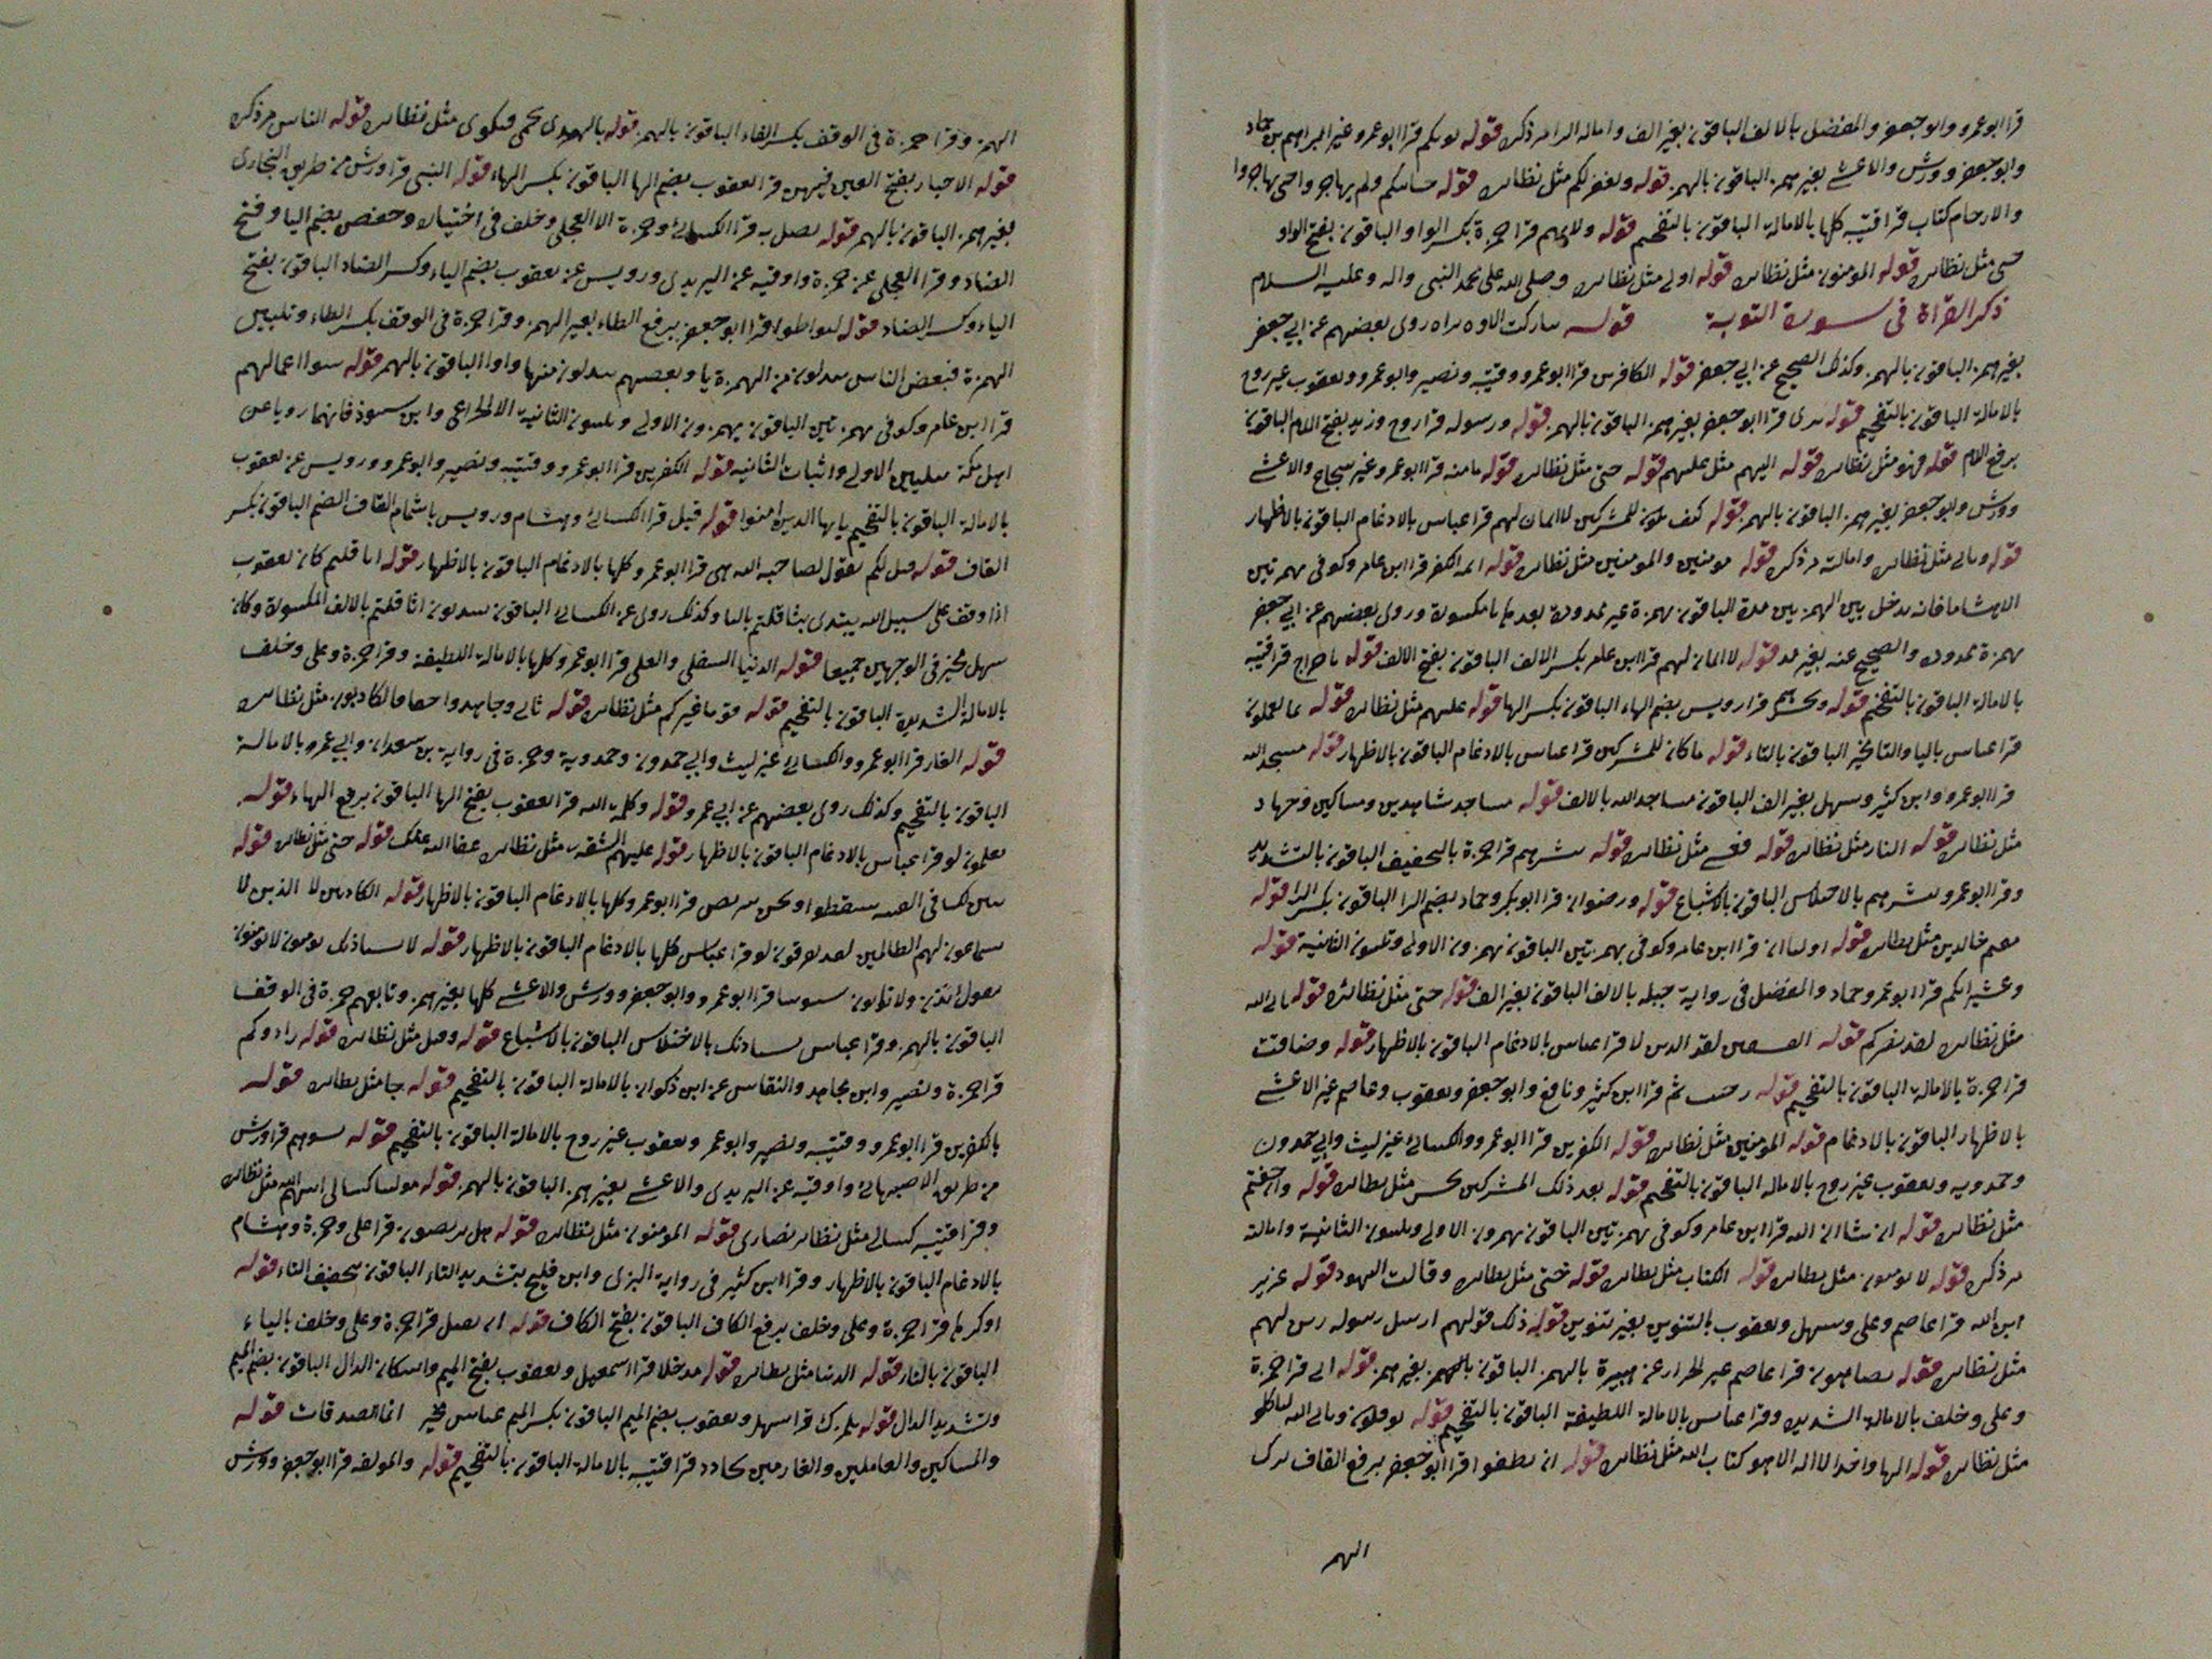 قرا ابو عمرو وابو جعفر والمفضل بالالف الباقون بغير الف وامالة الرا مر ذكره قوله قرا ابو عمرو غير ابراهيم بن حماد
وابو جعفر وورش والاعشى بغير همز الباقون بالهمز قوله ويغفر لكم مثل نظائره قوله ولم يهاجروا حتى يهاجروا
والارحام كتاب قرا قتيبه كلها بالامالة الباقون بالتفخيم قوله ولايتهم قرا حمزة بكسر الواو الباقون بفتح الواو
حتى مثل نظائره قوله المومنون مثل نظائره قوله اولى مثل نظائره وصلى الله على محمد النبى واله وعليه السلام
ذكر القراة فى سورة التوبة قوله روى بعضهم عن ابي جعفر
بغير همز الباقون بالهمز وكذلك الصحيح عن ابي جعفر قوله الكافرين قرا ابو عمرو وقتيبه ونصير وابو عمرو ويعقوب غير روح
بالامالة الباقون بالتفخيم قوله برى قرا ابو جعفر بغير همز الباقون بالهمز قوله ورسوله قرا روح وزيد بفتح اللام الباقون
برفع اللام قوله فهو مثل نظائره قوله اليهم مثل عليهم قوله حتى مثل نظائره قوله مامنه قرا ابو عمرو غير شجاع والاعشى
وورش وابو جعفر بغير همز الباقون بالهمز قوله كيف يكون للمشركين لا ايمان لهم قرا عباس بالادغام الباقون بالاظهار
قوله وتابى مثل نظائره وامالته مر ذكره قوله مومنين والمومنين مثل نظائره قوله ائمه الكفر قرا ابن عامر وكوفى بهمزتين
الا هشاما فانه يدخل بين الهمزتين مدة الباقون بهمزة غير ممدودة بعدها يا مكسورة وروى بعضهم عن ابي جعفر
بهمزة ممدودة والصحيح عنه بغير مد قوله لا ايمان لهم قرا ابن عامر بكسر الالف الباقون بفتح الالف قوله باخراج قرا قتيبه
بالامالة الباقون بالتفخيم قوله ويخزهم قرا رويس بضم الهاء الباقون بكسر الها قوله عليهم مثل نظائره قوله بما تعملون
قرا عباس باليا والتا مخير الباقون بالتاء قوله ما كان للمشركين قرا عباس بالادغام الباقون بالاظهار قوله مسجد الله
قرا ابو عمرو وابن كثير وسهل بغير الف الباقون مساجد الله بالالف قوله مساجد شاهدين ومساكين وجهاد
مثل نظائره قوله النار مثل نظائره قوله فعسى مثل نظائره قوله يبشرهم قرا حمزة بالتخفيف الباقون بالتشديد
وقرا ابو عمرو يبشرهم بالاختلاس الباقون بالاشباع قوله ورضوان قرا ابو بكر وحماد بضم الرا الباقون بكسر الرا قوله
مقيم خالدين مثل نظائره قوله اوليا ان قرا ابن عامر وكوفى بهمزتين الباقون بهمزون الاولى ويلينون الثانية قوله
وعشيراتكم قرا ابو عمرو وحماد والمفضل فى رواية جبله بالالف الباقون بغير الف قوله حتى مثل نظائره قوله ياتى الله
مثل نظائره لقد نصركم قوله قرا عباس بالادغام الباقون بالاظهار قوله وضاقت
قرا حمزة بالامالة الباقون بالتفخيم قوله رحبت ثم قرا ابن كثير ونافع وابو جعفر ويعقوب وعاصم غير الاعشى
بالاظهار الباقون بالادغام قوله المومنين مثل نظائره قوله الكفرين قرا ابو عمرو والكسائى غير ليث وابي حمدون
وحمدويه ويعقوب غير روح بالامالة الباقون بالتفخيم قوله بعد ذلك المشركين نجس مثل نظائره قوله وان خفتم
مثل نظائره قوله ان شا ان الله قرا ابن عامر وكوفى بهمزتين الباقون بهمزون الاولى ويلينون الثانية وامالته
مر ذكره قوله لا يومنون مثل نظائره قوله الكتاب مثل نظائره قوله حتى مثل نظائره وقالت اليهود قوله عزير
ابن الله قرا عاصم وعلى وسهل ويعقوب بالتنوين بغير تنوين قوله ذلك قولهم ارسل رسوله زين لهم
مثل نظائره قوله يضاهون قرا عاصم غير الخراز عن هبيرة بالهمز الباقون بغير همز قوله انى قرا حمزة
وعلى وخلف بالامالة الشديدة وقرا عباس بالامالة اللطيفة الباقون بالتفخيم قوله يوفكون ويابى الله لياكلو
مثل نظائره قوله الها واحدا لا اله الا هو كتاب الله مثل نظائره قوله ان يطفوا قرا ابو جعفر برفع القاف بترك
الهمز
الهمز وقرا حمزة فى الوقف بكسر الفاء الباقون بالهمز قوله بالهدى يحمى فتكوى مثل نظائره قوله الناس مر ذكره
قوله الاحبار بفتح العين فيهن قرا يعقوب بضم الها الباقون بكسر الهاء قوله النسى قرا ورش من طريق البخارى
بغير همز الباقون بالهمز قوله يضل به قرا الكسائى وحمزة الا العجلى وخلف فى اختياره وحفص بضم اليا وفتح
الضاد وقرا العجلى عن حمزة واوقيه عن اليزيدى ورويس عن يعقوب بضم الياء وكسر الضاد الباقون بفتح
الياء وكسر الضاد قوله ليواطوا قرا ابو جعفر برفع الطاء بغير الهمز وقرا حمزة فى الوقف بكسر الطاء وتليين
الهمزة فبعض الناس يبدلون من الهمزة يا وبعضهم يبدلون منها واوا الباقون بالهمز قوله سوا اعمالهم
قرا ابن عامر وكوفى بهمزتين الباقون يهمزون الاولى ويلينون الثانية الا الخزاعى وابن شنبوذ فانهما رويا عن
اهل مكة بتليين الاولى واثبات الثانيه قوله الكفرين قرا ابو عمرو وقتيبه ونصير وابو عمرو ورويس عن يعقوب
بالامالة الباقون بالتفخيم يايها الذين امنوا قوله قيل قرا الكسائى وهشام ورويس باشمام القاف الضم الباقون بكسر
القاف قوله قيل لكم يقول لصاحبه الله هى قرا ابو عمرو كلها بالادغام الباقون بالاظهار قوله اثاقلتم كان يعقوب
اذا وقف على سبيل الله يبتدى بثاقلتم بالتا وكذلك روى عن الكسائى الباقون يبتدون اثاقلتم بالالف المكسورة وكان
سهل يخير فى الوجهين جميعا قوله الدنيا السفلى والعلى قرا ابو عمرو كلها بالامالة اللطيفة وقرا حمزة وعلى وخلف
بالامالة الشديدة الباقون بالتفخيم قوله قوما غيركم مثل نظائره قوله ثانى وجاهدوا الكاذبون مثل نظائره
قوله الغار قرا ابو عمرو والكسائى غير ليث وابي حمدون وحمدويه وحمزة فى رواية بن سعدان وابي عمرو بالامالة
الباقون بالتفخيم وكذلك روى بعضهم عن ابي عمرو قوله وكلمة الله قرا يعقوب بفتح الها الباقون برفع الهاء قوله
يعلم لو قرا عباس بالادغام الباقون بالاظهار قوله عليهم الشقه مثل نظائره عفا الله عنك قوله حتى مثل نظائره قوله
فى الفتنة سقطوا ونحن نتربص قرا ابو عمرو كلها بالادغام الباقون بالاظهار قوله الكاذبين لا الذين لا
سماعون لهم الظالمين لقد قرا عباس كلها بالادغام الباقون بالاظهار قوله لا يستاذنك يومنون لا يومنون
يقول ائذن ولا ياتون تسوهم قرا ابو عمرو وابو جعفر وورش والاعشى كلها بغير همز وتابعهم حمزة فى الوقف
الباقون بالهمز وقرا عباس يستاذنك بالاختلاس الباقون بالاشباع قوله وقيل مثل نظائره قوله زادوكم
قرا حمزة ونصير وابن مجاهد والنقاش عن ابن ذكوان بالامالة الباقون بالتفخيم قوله جا مثل نظائره قوله
بالكفرين قرا ابو عمرو وقتيبه ونصير وابو عمر ويعقوب غير روح بالامالة الباقون بالتفخيم قوله تسوهم قرا ورش
من طريق الاصبهانى واوقيه عن اليزيدى والاعشى بغير همز الباقون بالهمز قوله مولينا كسالى اتيهم الله مثل نظائره
وقرا قتيبه كسالى مثل نظائره نصارى قوله المومنون مثل نظائره قوله هل تربصون قرا على وحمزة وهشام
بالادغام الباقون بالاظهار وقرا ابن كثير فى رواية البزى وابن فليح بتشديد التاء الباقون بتخفيف التاء قوله
او كرها قرا حمزة وعلى وخلف برفع الكاف الباقون بفتح الكاف قوله ان يقبل قرا حمزة وعلى وخلف بالياء
الباقون بالتاء قوله الدنيا مثل نظائره قوله مدخلا قرا اسمعيل ويعقوب بفتح الميم واسكان الدال الباقون بضم الميم
وتشديد الدال قوله يلمزك قرا سهل ويعقوب بضم الميم الباقون بكسر الميم عباس مخير انما الصدقات قوله
والمساكين والعاملين والغارمين قرا قتيبه بالامالة الباقون بالتفخيم قوله والمولفه قرا ابو جعفر وورش